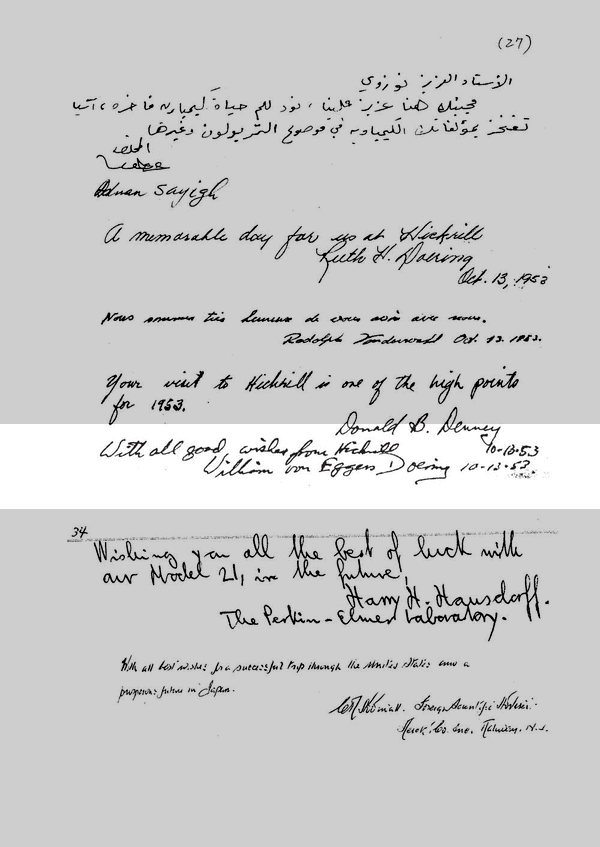 (27)
الأستاذ العزيز نوزوي
مجيئك هنا عزيز علينا ، نود لكم حياة كيمياوية فاخرة ، آسيا
تفتخر بمؤلفاتك الكيمياوية في موضوع التروبولون وغيرها
المخلص
Adnan Sayigh
A memorable day for us at Hickrill
Ruth H. Doering
Oct. 13, 1953
Nous sommes très heureux de vous avoir avec nous.
Rudolph Vanderwahl Oct. 13. 1953.
Your visit to Hickrill is one of the high points
for 1953.
Donald B. Denney
10-13-53
With all good wishes from Hickrill
William von Eggers Doering 10-13-53
34
Wishing you all the best of luck with
our Model 21, in the future,
Harry H. Hausdorff.
The Perkin-Elmer Laboratory.
With all best wishes for a successful trip through the United States and a
prosperous future in Japan.
Foreign Scientific
Merck & Co. Inc. Rahway, N.J.